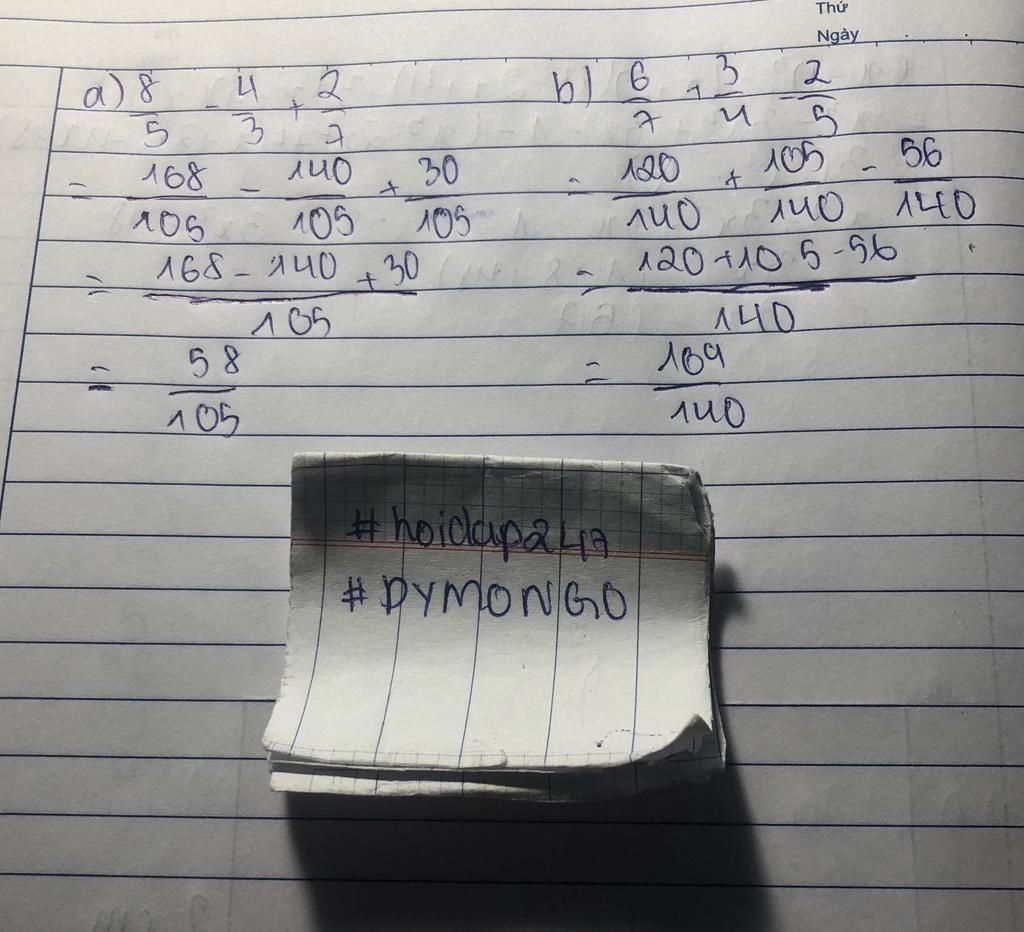 Thứ
Ngày
a) 8/5 - 4/3 + 2/7
= 168/105 - 140/105 + 30/105
= (168 - 140 + 30)/105
= 58/105
b) 6/7 + 3/4 - 2/5
= 120/140 + 105/140 - 56/140
= (120 + 105 - 56)/140
= 169/140
#hoidap247
#DYMONGO